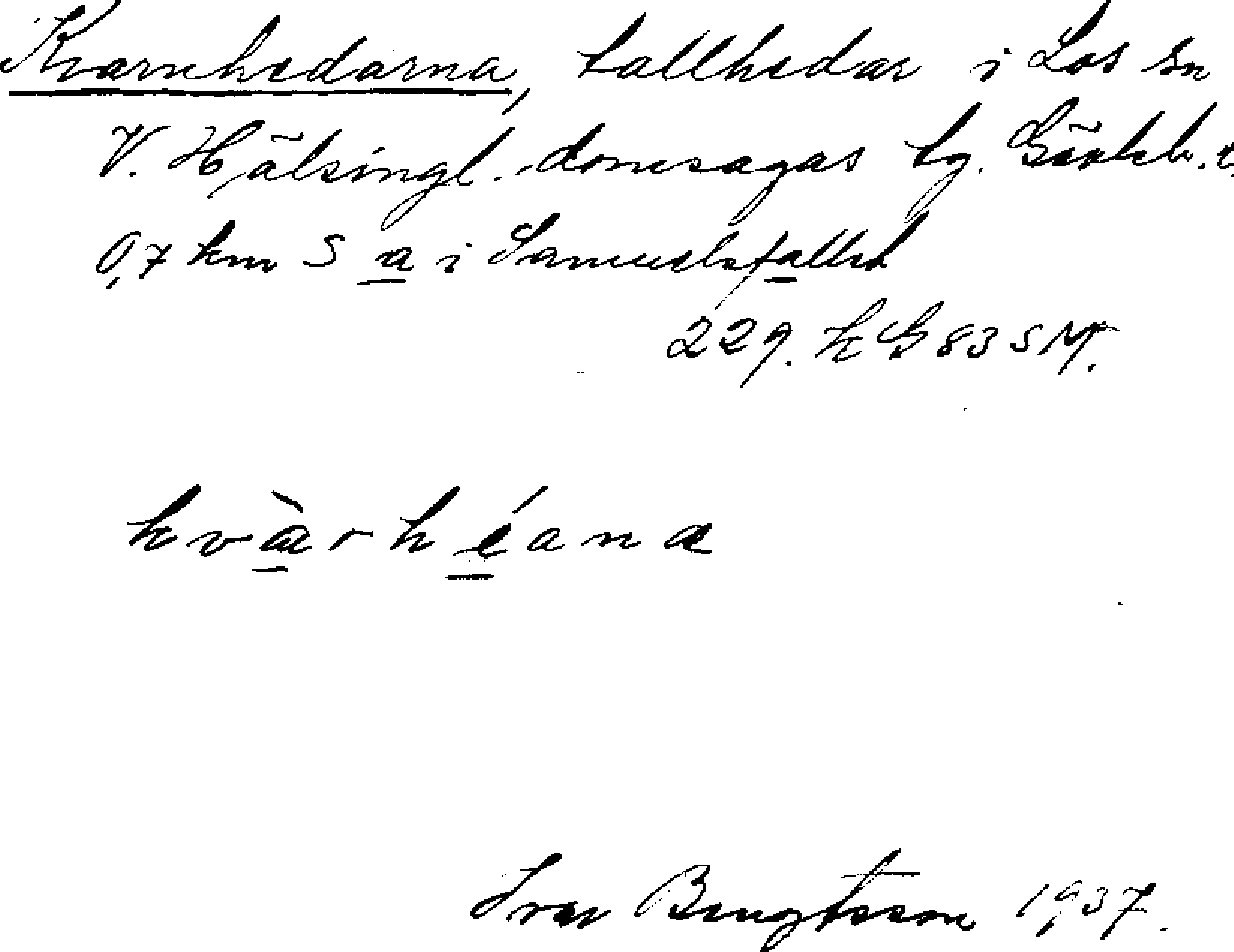 Kvarnhedarna, tallhedar i Los sn
V. Hälsingl. domsagas tg. Gävleb. l.
0,7 km S a i Samuelsfallet
229. KG 83 SM.
kvàrhéana
Ivar Bengtsson 1937.